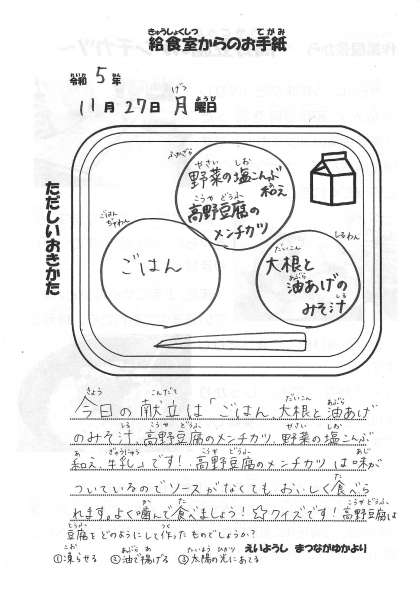 きゅうしょくしつ てがみ
給食室からのお手紙
れいわ ねん
令和 5 年
がつ ようび
11月27日 月曜日
げつ
ただしいおきかた
ふかざら
やさい しお
野菜の塩こんぶ
和え
こうや どうふ
高野豆腐の
メンチカツ
ごはん
ちゃわん
ごはん
しるわん
だいこん
大根と
あぶら
油あげの
しる
みそ汁
きょう こんだて だいこん あぶら
今日の献立は「ごはん、大根と油あげ
しる こうや どうふ やさい しお
のみそ汁、高野豆腐のメンチカツ、野菜の塩こんぶ
あ ぎゅうにゅう こうや どうふ あじ
和え、牛乳」です！高野豆腐のメンチカツは味が
た
ついているのでソースがなくてもおいしく食べら
か た こうやどうふ
れます。よく噛んで食べましょう！☆クイズです！高野豆腐は
とうふ つく
豆腐をどのようにして作ったものでしょうか？
えいようし まつながゆかより
こお あぶら あ たいよう ひかり
①凍らせる ②油で揚げる ③太陽の光にあてる